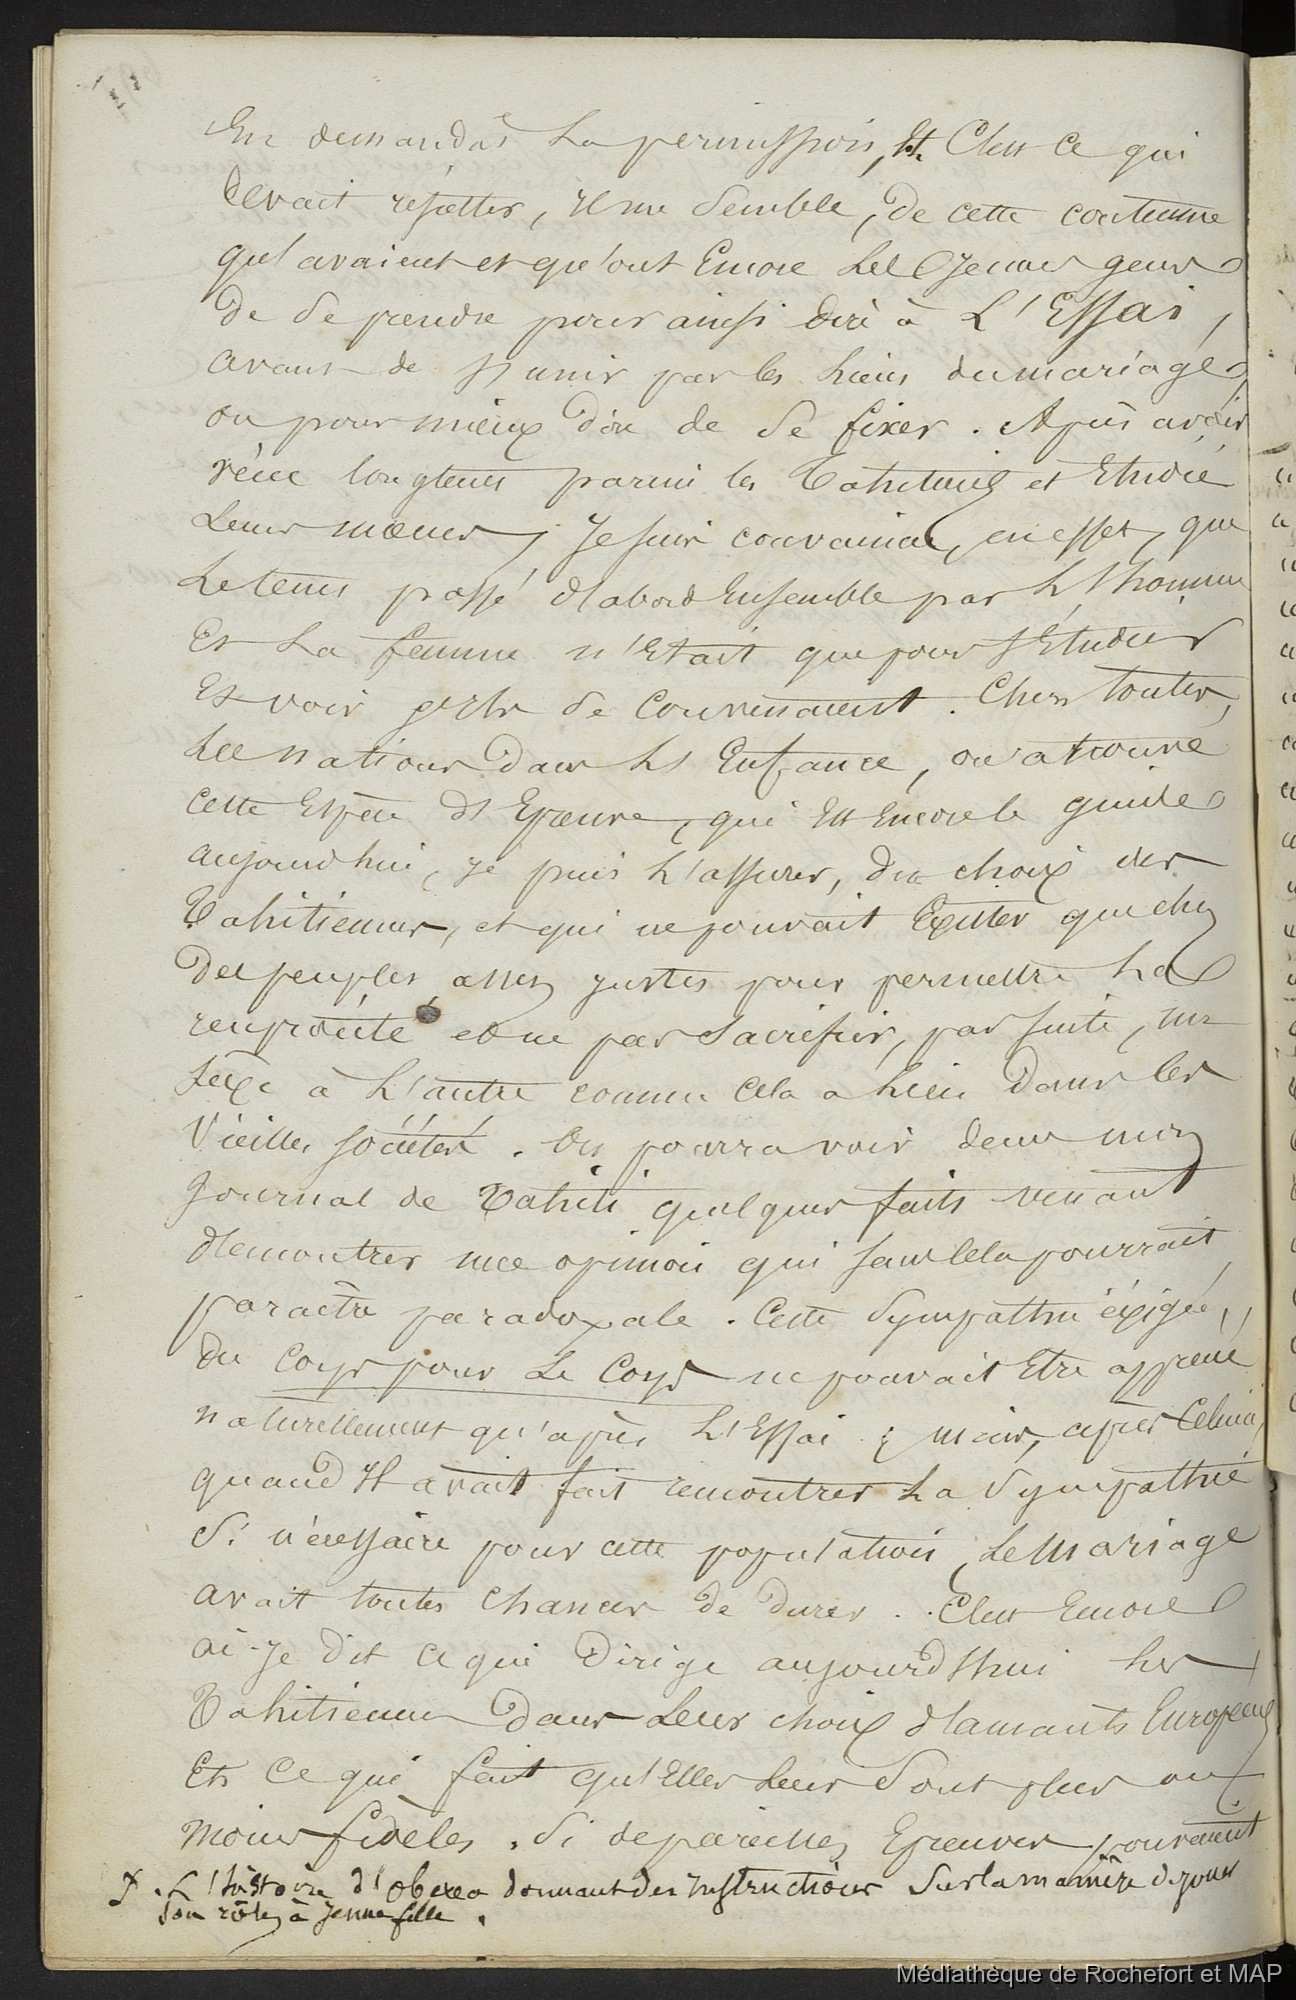 En demandât la permission, et C'est ce qui
devait résulter, il me Semble, de cette coutume
qu'avaient et qu'ont Encore Les Jeunes gens
de Se prendre pour ainsi dire à L'Essai,
avant de s'unir par les liens du mariage,
ou pour mieux dire de Se fixer. Après avoir
vécu longtems parmi les Tahitiens et Etudié
Leurs mœurs, Je suis convaincu, en effet, que
Le tems passé d'abord Ensemble par L'homme
Et La femme n'Etait que pour s'Etudier
Et voir s'ils Se Convenaient. Chez toutes
Les nations dans L'Enfance, on a trouvé
cette Espèce d'Epreuve, qui Est Encore le guide
aujourd'hui, je puis L'assurer, du choix des
Tahitiennes, et qui ne pouvait Exister que chez
des peuples assez justes pour permettre La
réciprocité et ne pas Sacrifier, par suite, un
sexe à L'autre comme Cela a lieu dans les
Vieilles sociétés. On pourra voir dans mon
Journal de Tahiti quelques faits venant
démontrer une opinion qui sans cela pourrait
paraître paradoxale. Cette Sympathie éxigée,
du Corps pour Le Corps ne pouvait Etre apprécié
naturellement qu'après L'Essai ; mais, après Celui-ci,
quand Il avait fait rencontrer La Sympathie
Si nécessaire pour cette population, Le Mariage
avait toutes chances de durer. C'est Encore
ai-je dit ce qui dirige aujourd'hui les
Tahitiennes dans Leur choix d'amants Européens
Et Ce qui fait qu'Elles Leur Sont plus ou
moins fidèles. Si de pareilles Epreuves pouvaient
L'histoire d'Obéréa donnant des Instructions Sur la manière de jouer
son rôle à jeune fille.
Médiathèque de Rochefort et MAP